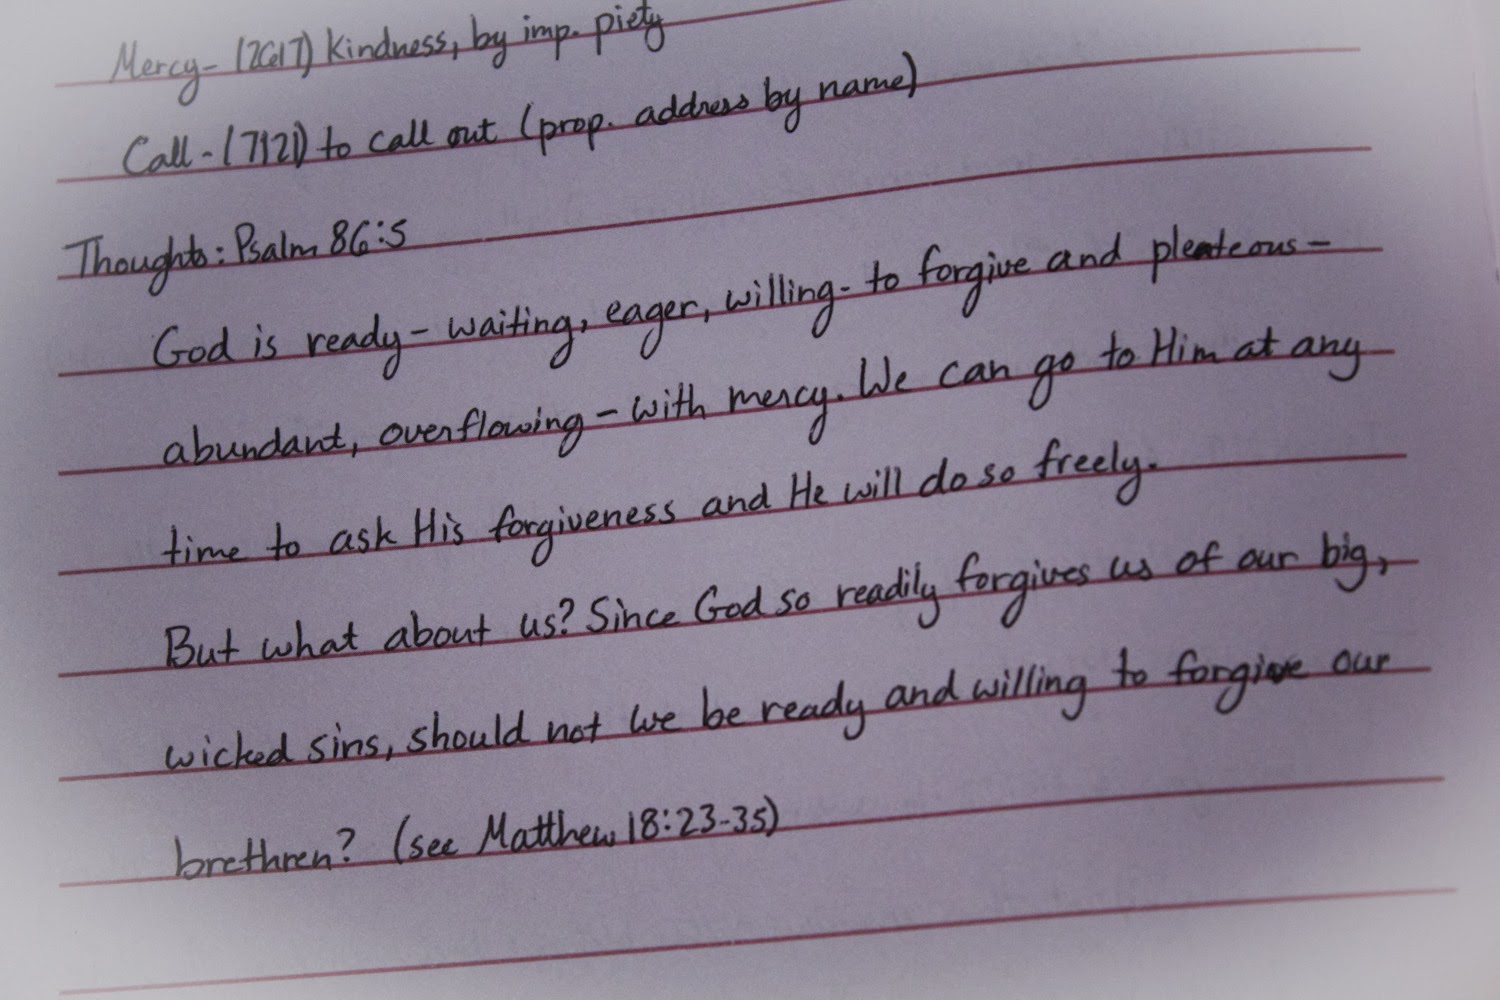 Mercy- (2617) kindness, by imp. piety
Call- (7121) to call out (prop. address by name)
Thoughts: Psalm 86:5
God is ready- waiting, eager, willing- to forgive and plenteous-
abundant, overflowing- with mercy. We can go to Him at any
time to ask His forgiveness and He will do so freely.
But what about us? Since God so readily forgives us of our big,
wicked sins, should not we be ready and willing to forgive our
brethren? (see Matthew 18:23-35)